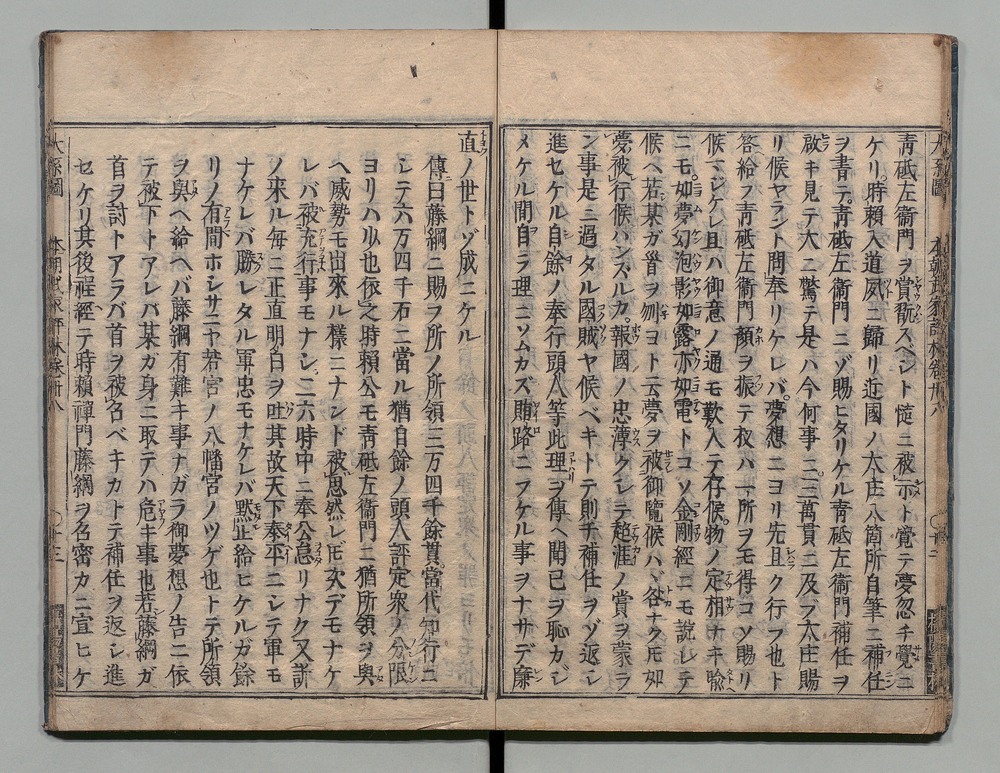 青砥左衞門ヲ賞翫スベシト慥ニ被示ト覺テ夢忽チ覺ニ
ケリ時賴入道夙ニ歸リ近國ノ大庄八箇所自筆ニ補任
ヲ書テ青砥左衞門ニゾ賜ヒタリケル青砥左衞門補任ヲ
啟キ見テ大ニ驚テ是ハ今何事ニ三萬貫ニ及ブ大庄賜
リ候ヤラント問奉リケレバ夢想ニヨリ先且ク行フ也ト
答給フ青砥左衞門顏ヲ振テ扠ハ一所ヲモ得コソ賜リ
候マジケレ且ハ御意ノ通モ歎入テ存候物ノ定相ナキ喩
ニモ如夢幻泡影如露亦如電トコソ金剛經ニモ說レテ
候ヘ若某ガ首ヲ刎ヨト云夢ヲ被御覽候ハヾ咎ナクモ如
夢被行候ハンズルカ報國ノ忠薄クシテ超涯ノ賞ヲ蒙ラ
ン事是ニ過タル國賊ヤ候ベキトテ則チ補任ヲゾ返シ
進セケル自餘ノ奉行頭人等此理ヲ傳ヘ聞已ヲ恥カシ
メケル間自ラ理ニソムカズ賄路ニフケル事ヲナサデ廉
直ノ世トゾ成ニケル
傳曰藤綱ニ賜ヲ所ノ所領三万四千餘貫當代知行ニ
シテ六万四千石ニ當ル猶自餘ノ頭人評定衆ノ分限
ヨリハ少也依之時賴公モ青砥左衞門ニ猶所領ヲ與
ヘ威勢モ出來ル樣ニナシト被思然レモ次デモナケ
レバ被充行事モナシ二六時中ニ奉公息リナク又訴
ノ來ル每ニ正直明白ヲ吐其故天下泰平ニシテ軍モ
ナケレバ勝レタル軍忠モナケレバ黙止給ヒケルガ餘
リノ有間ホシサニヤ若宮ノ八幡宮ノツゲ也トテ所領
ヲ與ヘ給ヘバ藤綱有難キ事ナガラ御夢想ノ告ニ依
テ被下トアレバ某ガ身ニ取テハ危キ事也若藤綱ガ
首ヲ討トアラバ首ヲ被召ベキカトテ補任ヲ返シ進
セケリ其後程經テ時賴禪門藤綱ヲ召密カニ宣ヒケ